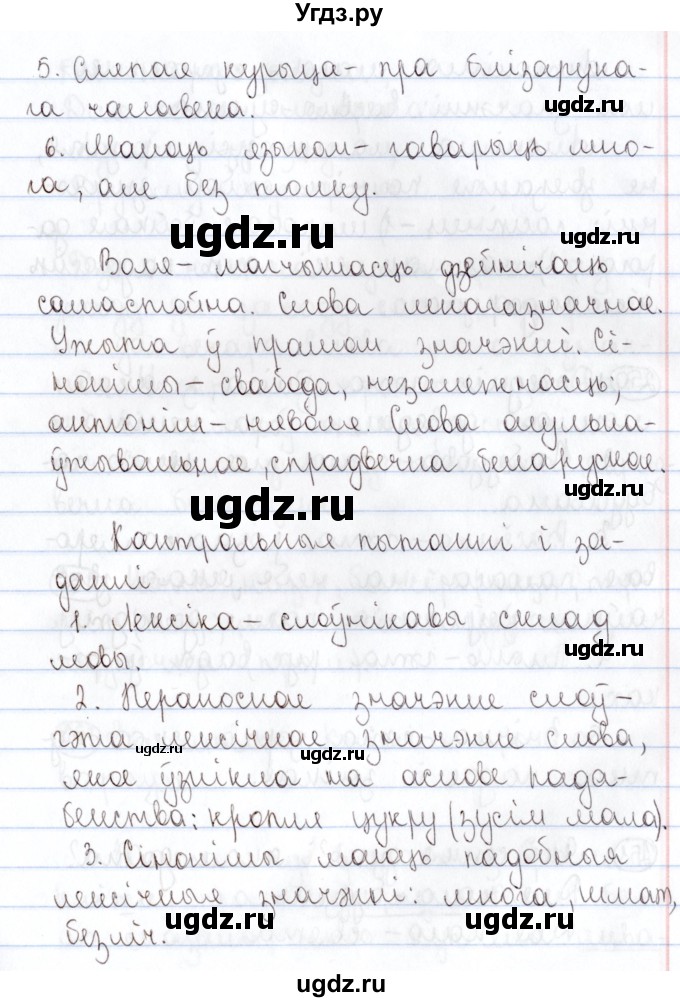 Угдз.ру
5. Сляпая курыца – пра блізарука-
га чалавека.
ugdz.ru
6. Малоць языком – гаварыць мно-
га, але без толку.
ugdz.ru
ugdz.ru
Воля – магчымасць дзейнічаць
самастойна. Слова мнагазначнае.
Ужыта ў прамым значэнні. Сі-
нонімы – свабода, незалежнасць;
антонім – няволя. Слова агульна-
ўжывальнае, спрадвечна беларускае.
ugdz.ru
ugdz.ru
Кантрольныя пытанні і за-
данні
1. Лексіка – слоўнікавы склад
мовы.
ugdz.ru
2. Пераноснае значэнне слоў –
гэта лексічнае значэнне слова,
ugdz.ru
ugdz.ru
якое ўзнікла на аснове пада-
бенства: кропля цукру (зусім мала).
ugdz.ru
3. Сінонімы маюць падобныя
лексічныя значэнні: многа, шмат,
ugdz.ru
ugdz.ru
безліч.
ugdz.ru